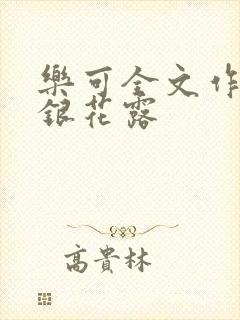 樂可全文作
銀花露
高貴林